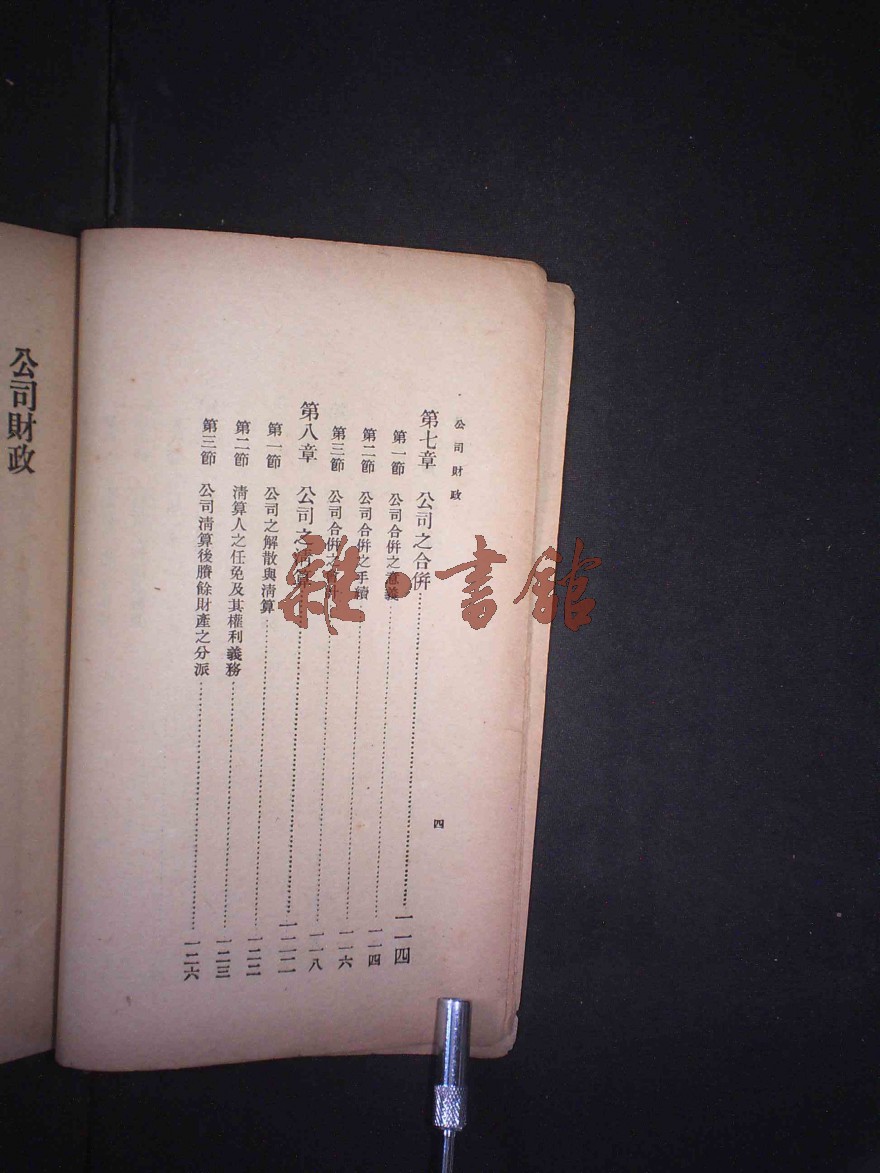 公司財政
四
第七章 公司之合併 一一四
第一節 公司合併之意義 一一四
第二節 公司合併之手續 一一六
第三節 公司合併之 一一八
第八章 公司之清算 一二二
第一節 公司之解散與清算 一二二
第二節 清算人之任免及其權利義務 一二三
第三節 公司清算後賸餘財產之分派 一二六
公司財政
雜·書館